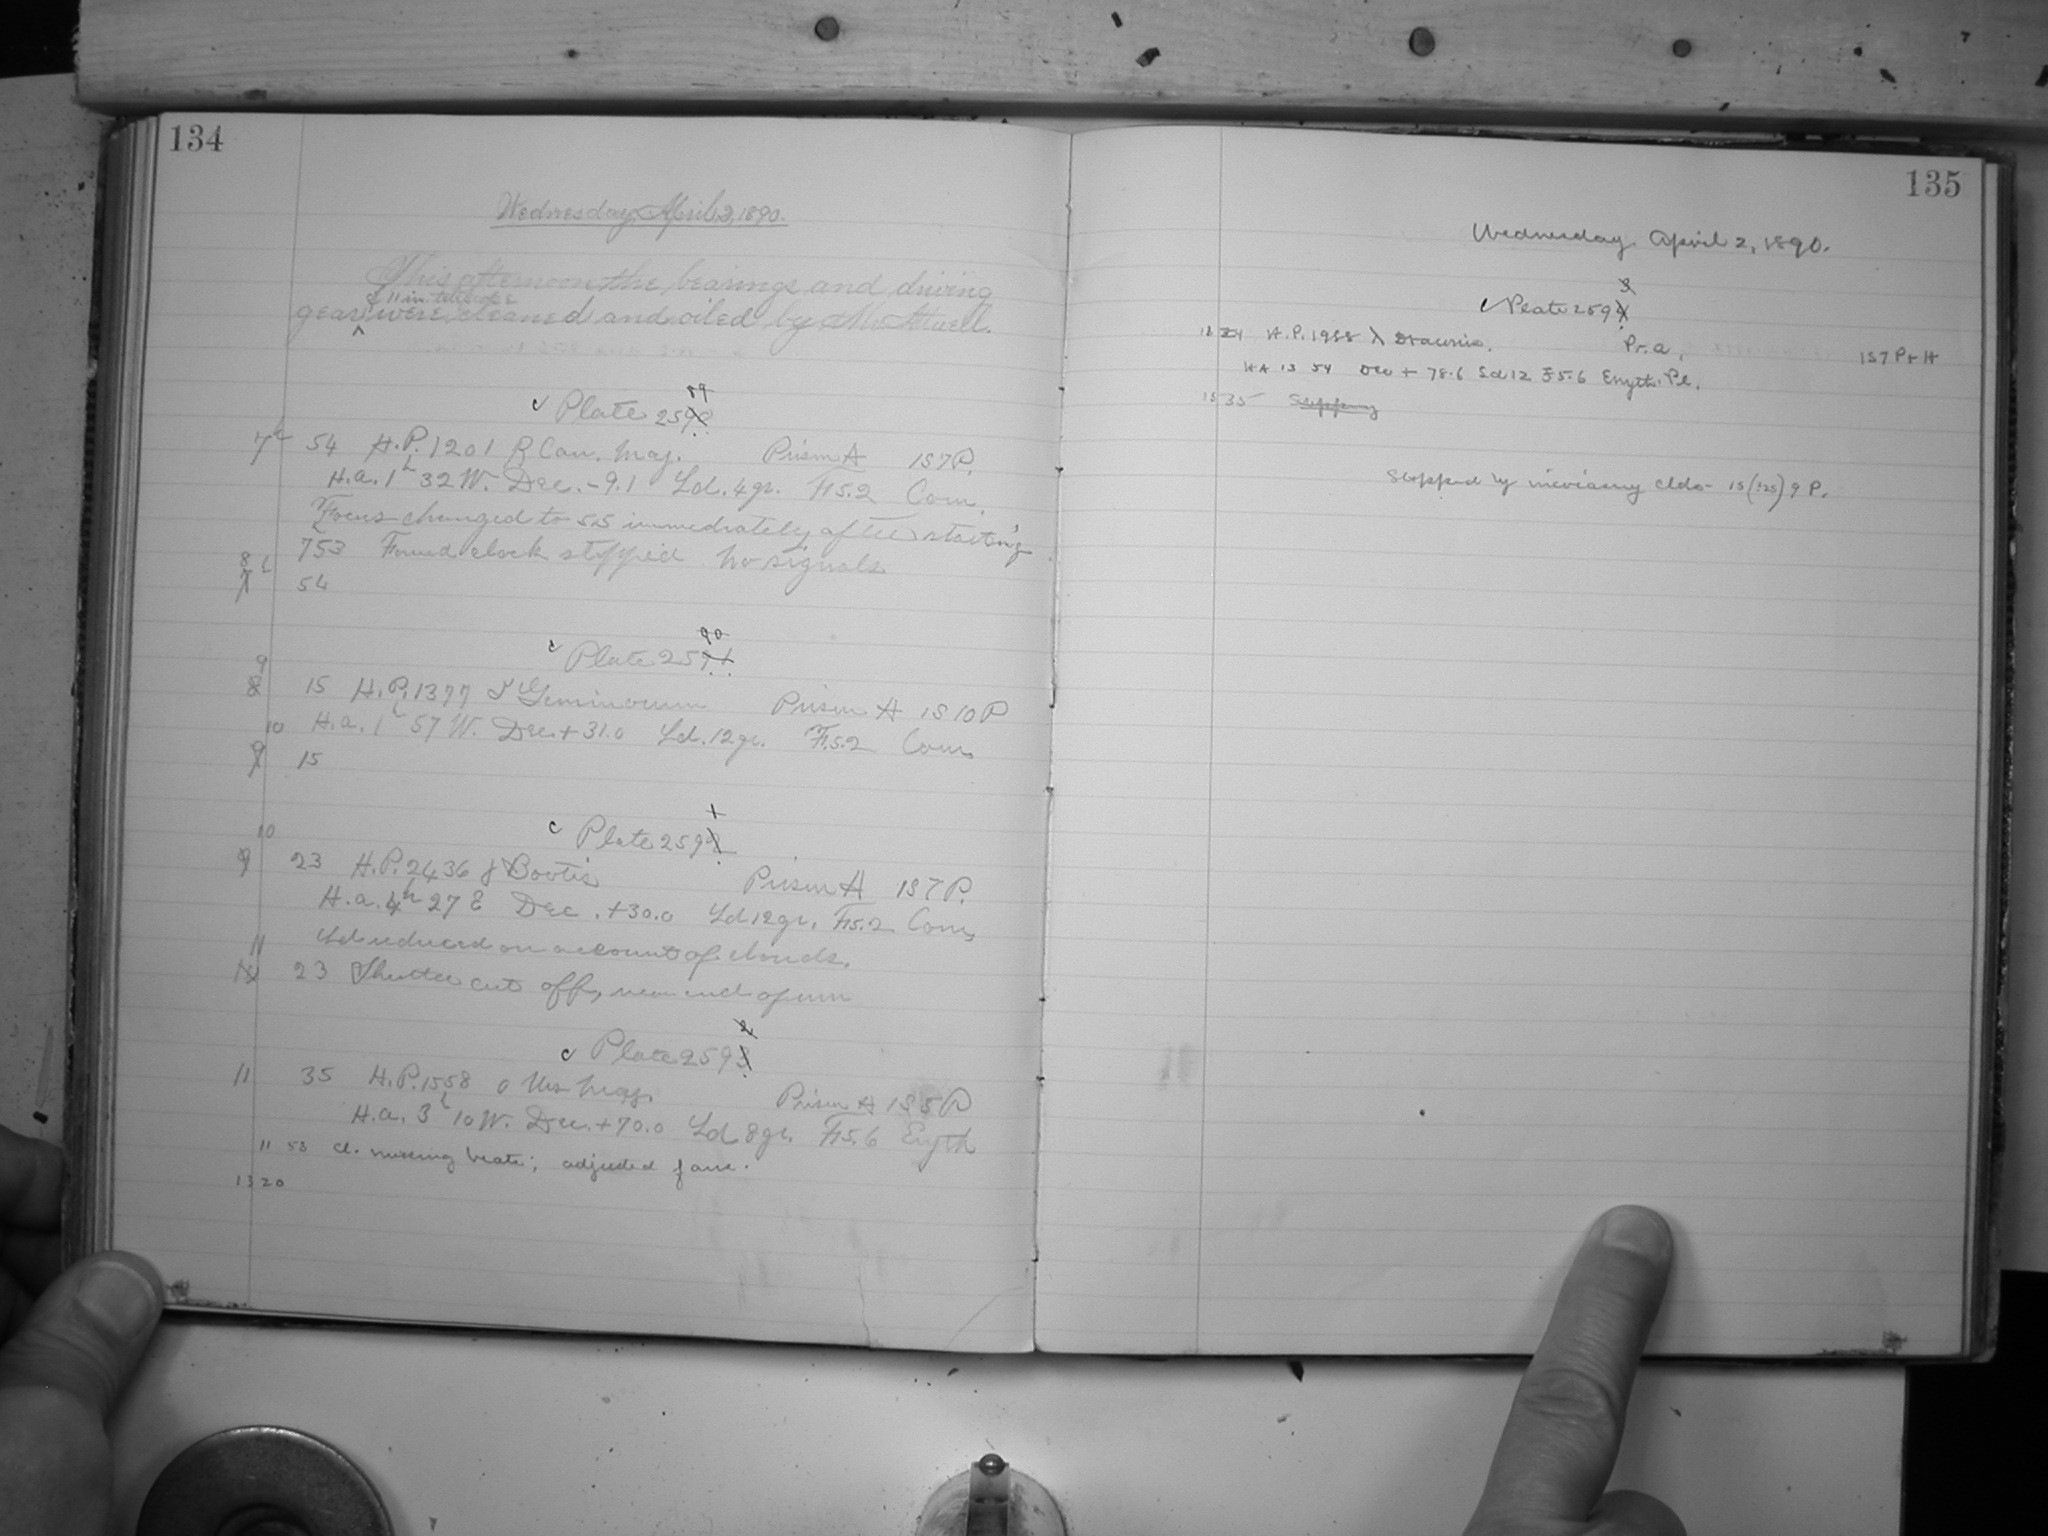 134
Wednesday, April 2, 1890.
This afternoon the bearings and driving
11 in. telescope
gears were cleaned and oiled by Mr.
89
c Plate 2590
7h 54 H.P. 1201 R Can. Maj. Prism A IS 7 P.
H.a. 1h 32 W. Dec. -9.1 Ld. 4gr. F 5.2 Com.
Focus changed to 5.5 immediately after starting
753 Found clock stopped no signals.
8h 7 54
90
c Plate 2591
9 8 15 H.P. 1377 Geminorum Prism A IS 10 P
H.a. 1h 57 W. Dec. + 31.0 Ld. 12gr. F 5.2 Com.
10 9 15
1
c Plate 2592
10 9 23 H.P. 2436 Bootis Prism A IS 7 P.
H.a. 4h 27 E Dec. +30.0 Ld 12gr. F 5.2 Com.
Ld reduced on account of clouds.
11 10 23 Shutter cut off, near end of run
2
c Plate 2593
11 35 H.P. 1558 o Urs. Maj. Prism A IS 5 P
H.a. 3h 10 W. Dec. +70.0 Ld 8gr. F 5.6 Eryth
11 53 cl. missing beats; adjusted fans.
13 20
135
Wednesday April 2, 1890.
3
c Plate 2594
13 24 H.P. 1988 λ Draconis. Pr. a. IS 7 P + H
HA 13 54 Dec + 78.6 Sd 12 F 5.6 Eryth. Pl.
15 35 Stopping
Stopped by increasing clds - 15 (:25) 9 P.